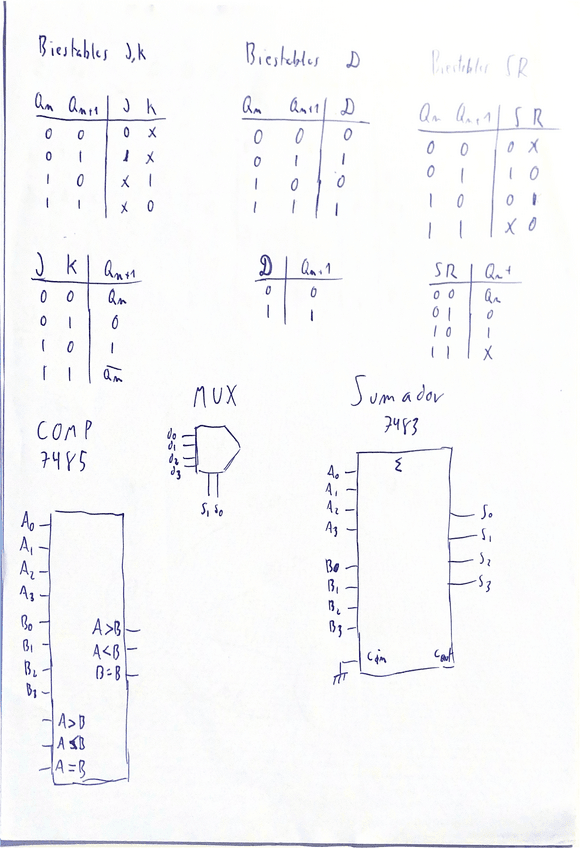 Biestables J,K
Qn Qn+1 | J K
0 0 | 0 x
0 1 | 1 x
1 0 | x 1
1 1 | x 0
J K | Qn+1
0 0 | Qn
0 1 | 0
1 0 | 1
1 1 | Q̅n
Biestables D
Qn Qn+1 | D
0 0 0
0 1 1
1 0 0
1 1 1
D | Qn+1
0 0
1 1
Biestables SR
Qn Qn+1 | S R
0 0 0 X
0 1 1 0
1 0 0 1
1 1 X 0
SR | Qn+
0 0 Qn
0 1 0
1 0 1
1 1 X
COMP
7485
A0
A1
A2
A3
B0
B1
B2
B3
A>B
A<B
B=B
A>B
A<B
A=B
MUX
d0
d1
d2
d3
S1 S0
Sumador
7483
Σ
A0
A1
A2
A3
B0
B1
B2
B3
S0
S1
S2
S3
Cin Cout